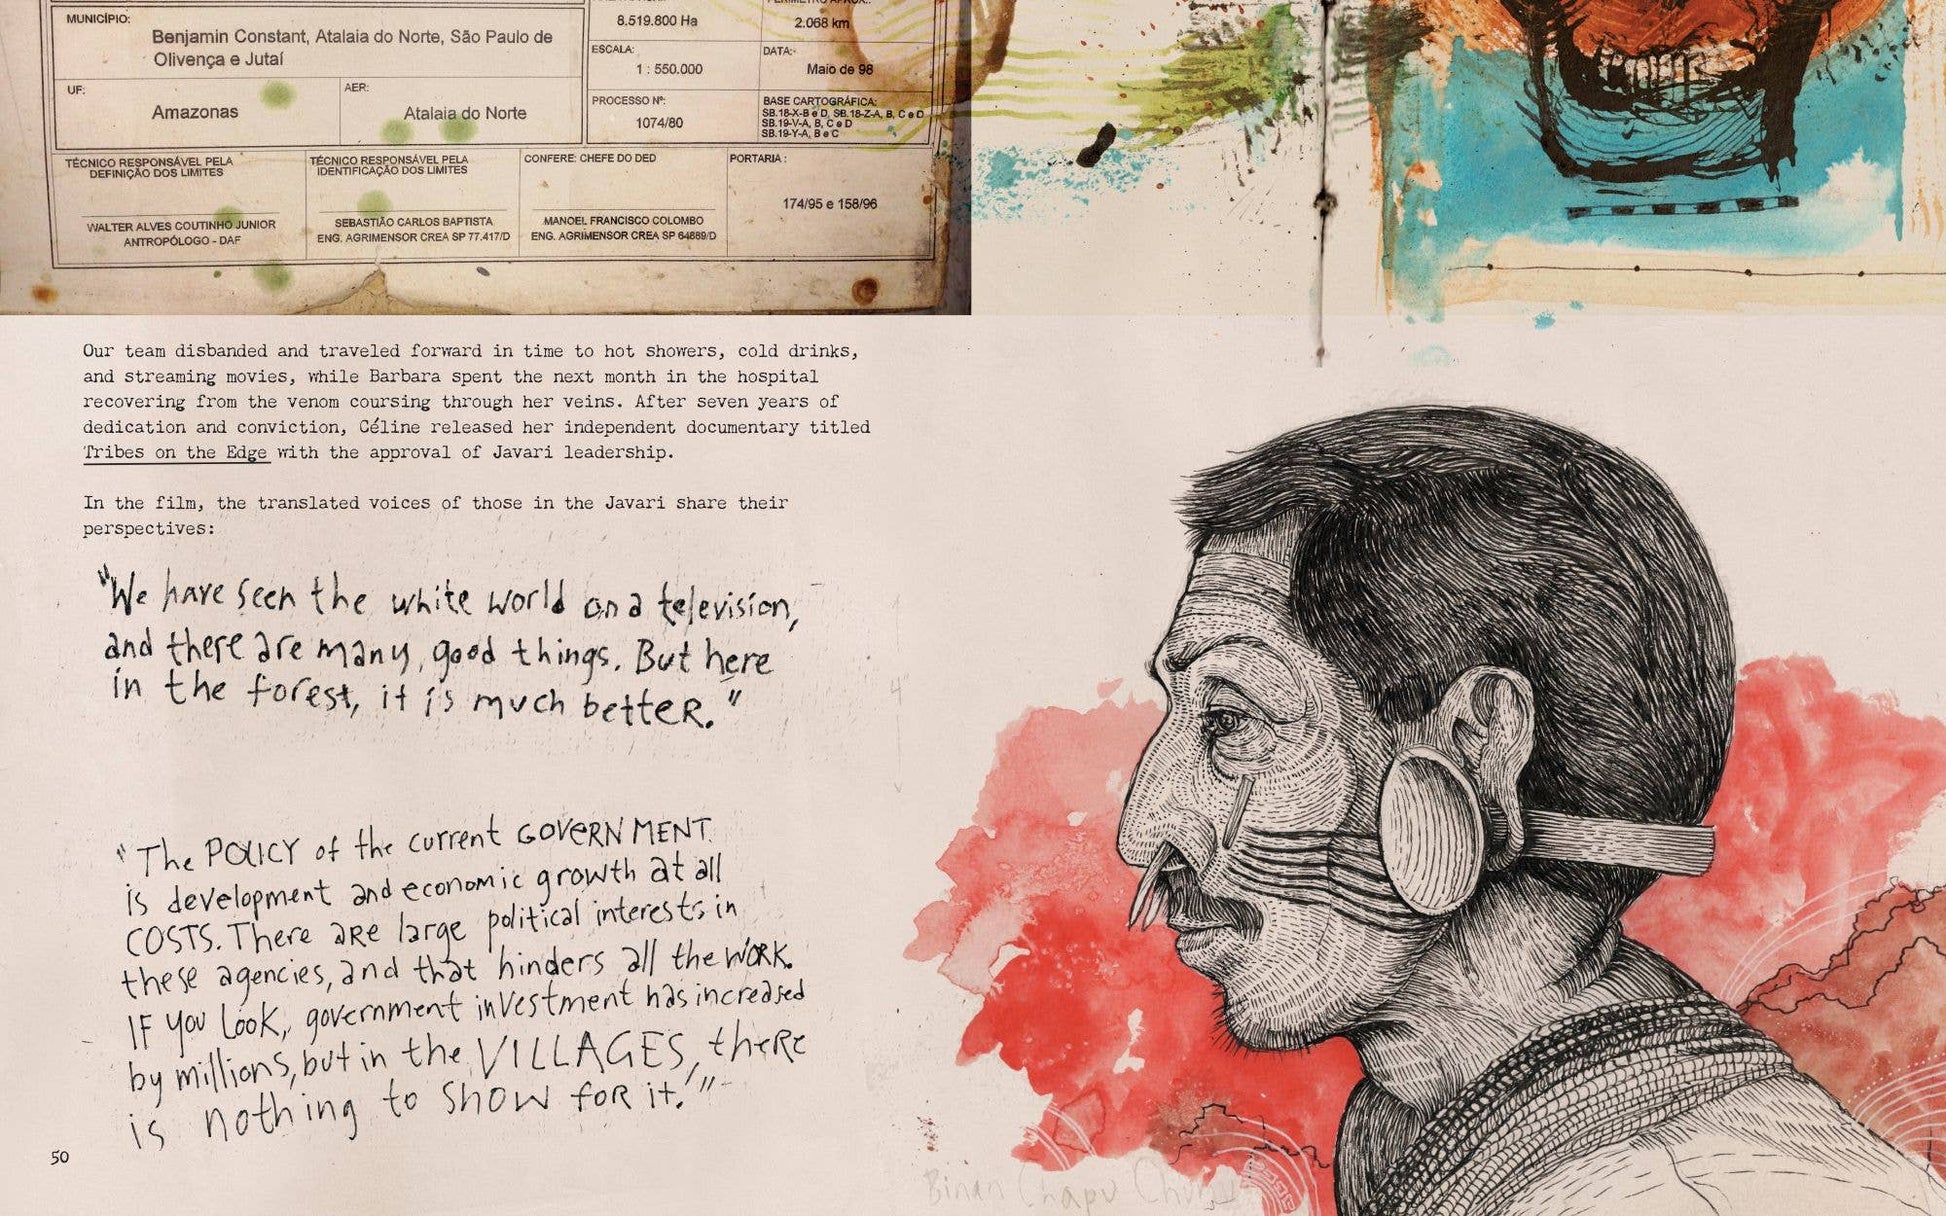 MUNICÍPIO:
Benjamin Constant, Atalaia do Norte, São Paulo de
Olivença e Jutaí
UF:
Amazonas
AER:
Atalaia do Norte
8.519.800 Ha
2.068 km
ESCALA:
1 : 550.000
DATA:
Maio de 98
PROCESSO Nº:
1074/80
BASE CARTOGRÁFICA:
SB.18-X-B e D, SB.18-Z-A, B, C e D
SB.19-V-A, B, C e D
SB.19-Y-A, B e C
TÉCNICO RESPONSÁVEL PELA
DEFINIÇÃO DOS LIMITES
WALTER ALVES COUTINHO JUNIOR
ANTROPÓLOGO - DAF
TÉCNICO RESPONSÁVEL PELA
IDENTIFICAÇÃO DOS LIMITES
SEBASTIÃO CARLOS BAPTISTA
ENG. AGRIMENSOR CREA SP 77.417/D
CONFERE: CHEFE DO DED
MANOEL FRANCISCO COLOMBO
ENG. AGRIMENSOR CREA SP 64869/D
PORTARIA :
174/95 e 158/96
Our team disbanded and traveled forward in time to hot showers, cold drinks,
and streaming movies, while Barbara spent the next month in the hospital
recovering from the venom coursing through her veins. After seven years of
dedication and conviction, Céline released her independent documentary titled
Tribes on the Edge with the approval of Javari leadership.
In the film, the translated voices of those in the Javari share their
perspectives:
"We have seen the white world on a television,
and there are many, good things. But here
in the forest, it is much better."
"The POLICY of the current GOVERNMENT
is development and economic growth at all
COSTS. There are large political interests in
these agencies, and that hinders all the work.
IF you look, government investment has increased
by millions, but in the VILLAGES, there
is nothing to show for it."
50
4"
Binan Chapu